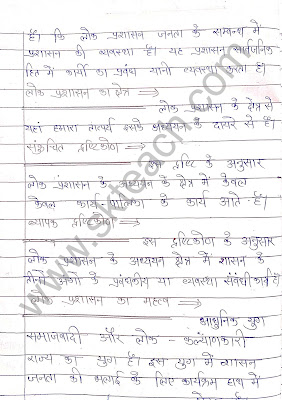 है। कि लोक प्रशासन जनता के सम्बन्ध में
प्रशासन की व्यवस्था है। यह प्रशासन सार्वजनिक
हित में कार्यों का प्रबंध यानी व्यवस्था करता है।
लोक प्रशासन का क्षेत्र ⇒
लोक प्रशासन के क्षेत्र से
यहां हमारा तात्पर्य इसके अध्ययन के दायरे से है।
संकुचित दृष्टिकोण ⇒
इस दृष्टि के अनुसार
लोक प्रशासन के अध्ययन के क्षेत्र में केवल
केवल कार्य-पालिका के कार्य आते है।
व्यापक दृष्टिकोण ⇒
इस दृष्टिकोण के अनुसार
लोक प्रशासन के अध्ययन क्षेत्र में शासन के
तीनों अंगो के प्रबंधकीय या व्यवस्था संबंधी कार्य है
लोक प्रशासन का महत्व ⇒
आधुनिक युग
समाजवादी और लोक - कल्याणकारी
राज्य का युग है। इस युग में शासन
जनता की भलाई के लिए कार्यक्रम हाथ में
www.skteach.com